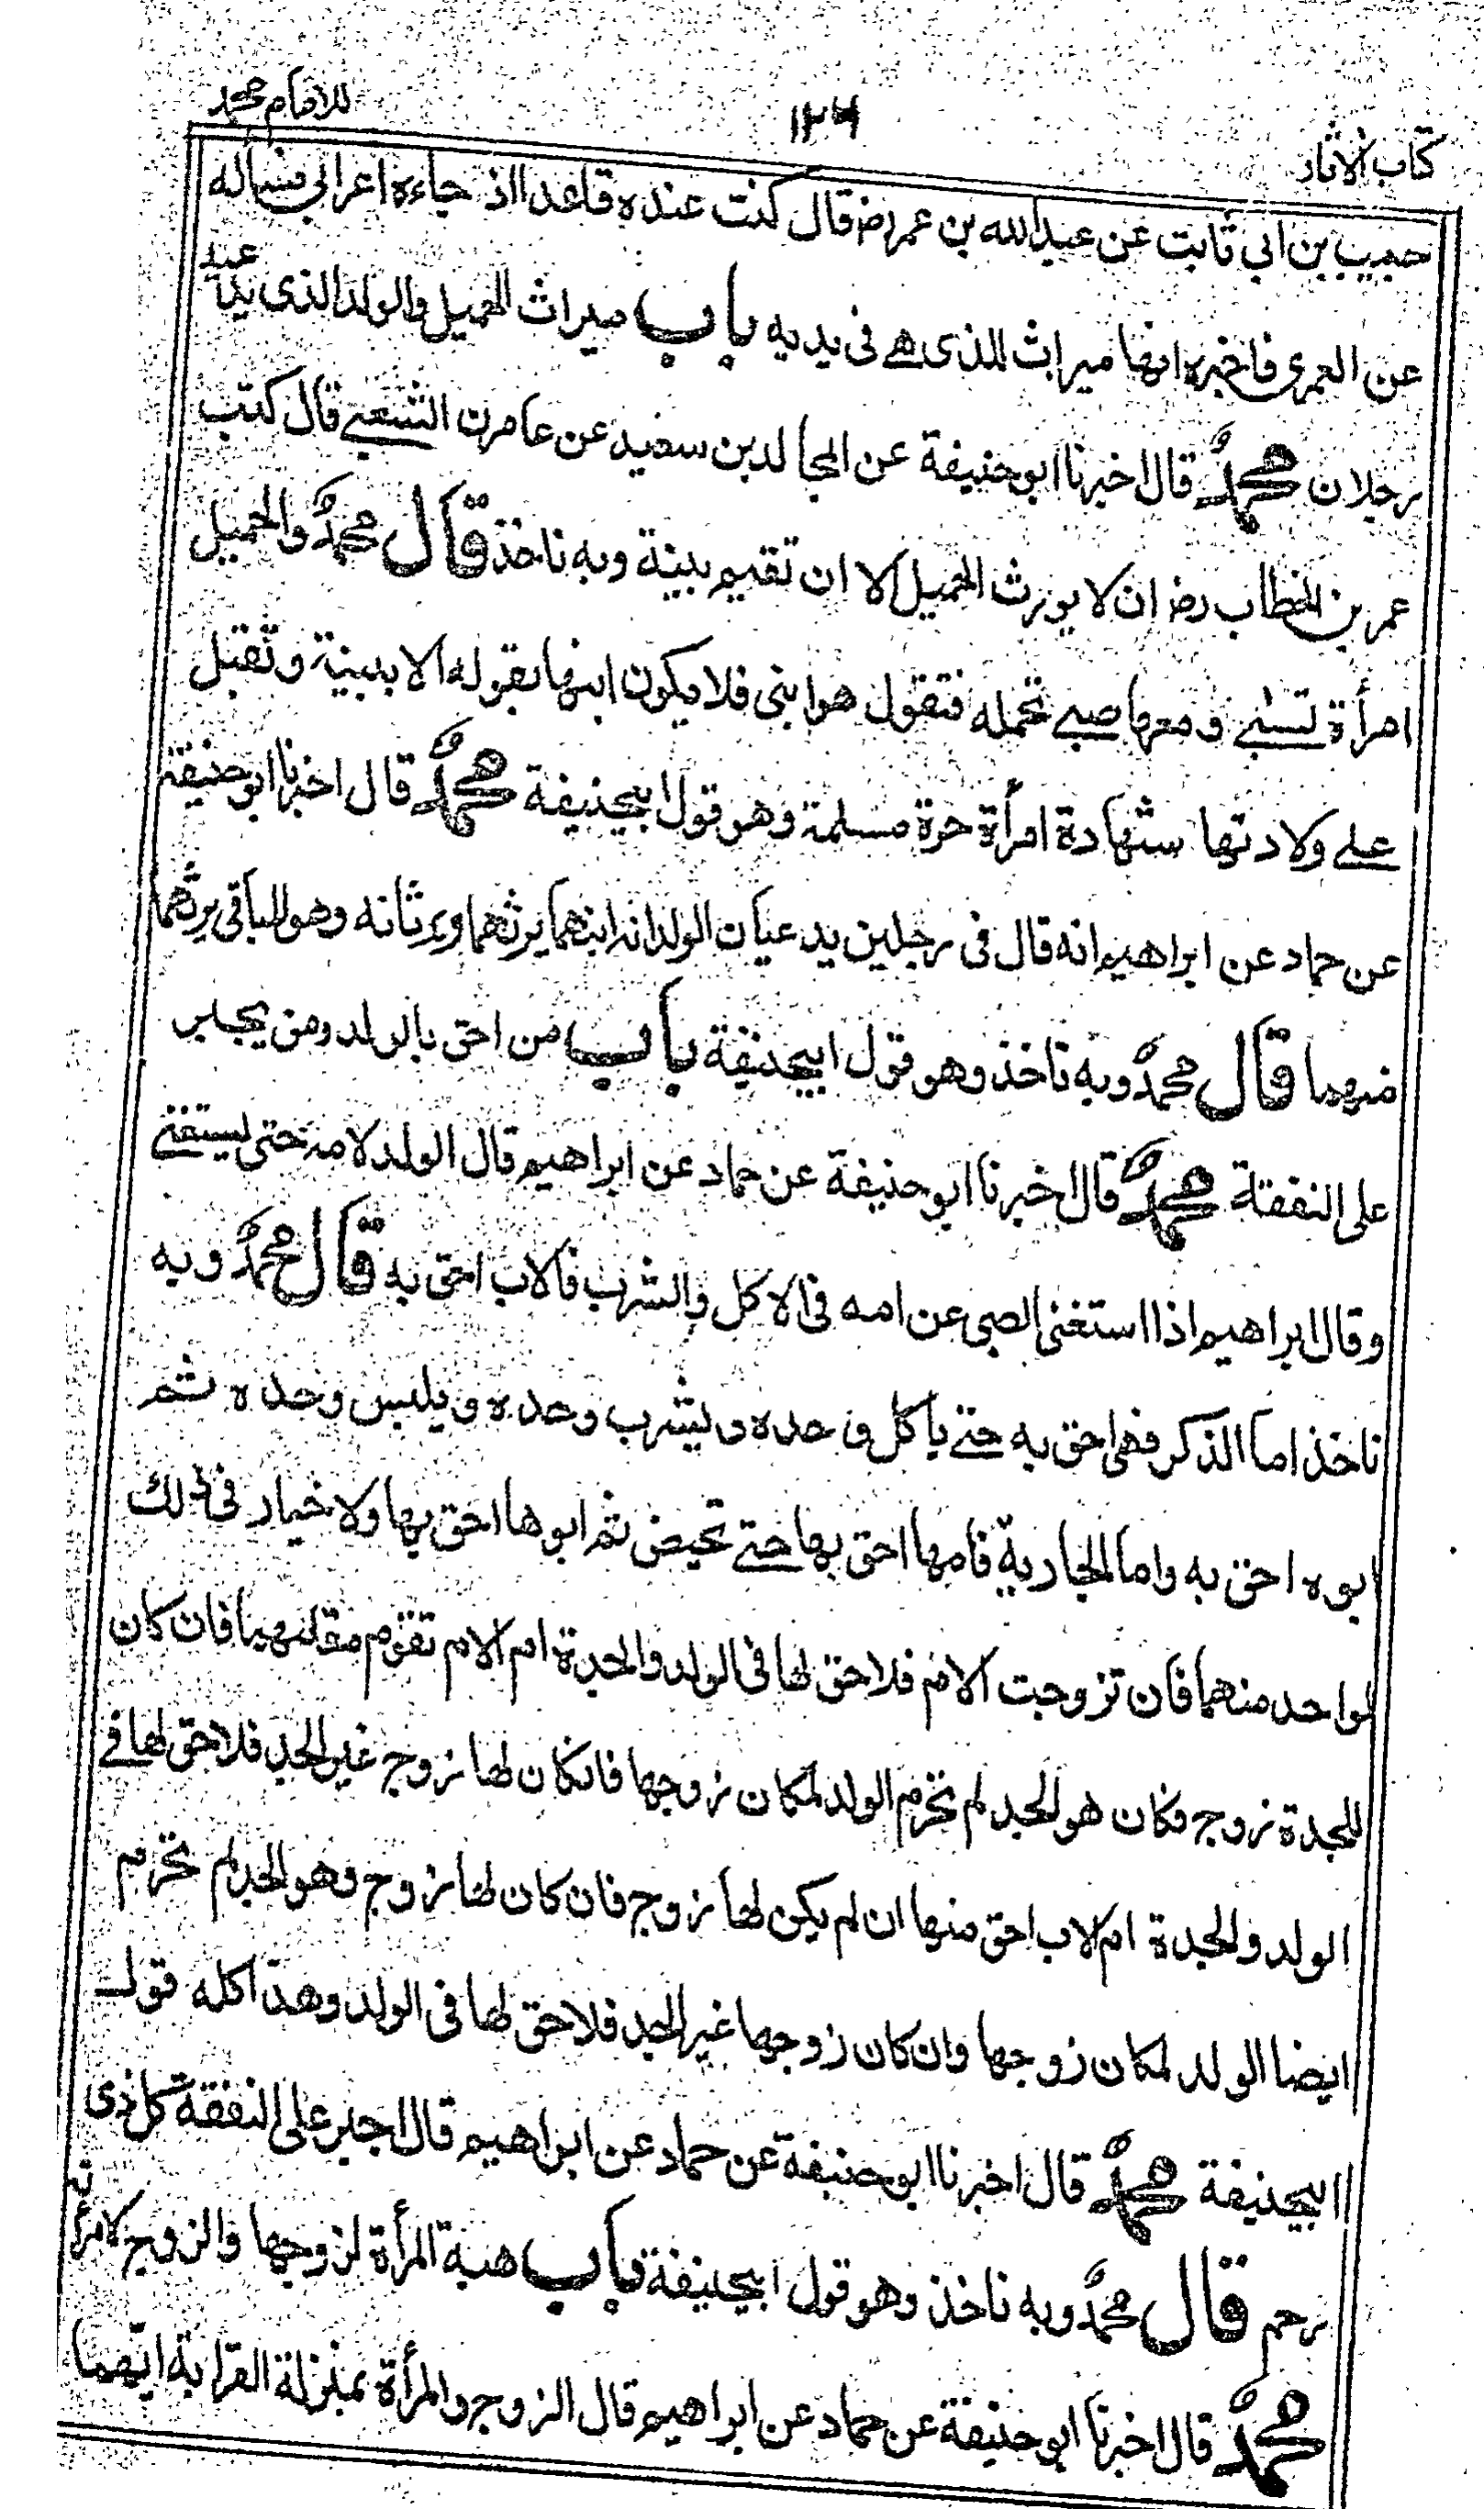 كتاب الاثار ١٢٦ للامام محمد
حبيب بن ابي ثابت عن عبدالله بن عمر رض قال كنت عنده قاعدا اذ جاءه اعرابي فسأله
عن العمرى فاخبره انها ميراث للذى هے فى يديه باب ميراث الحميل والولد الذى يدعيه
رجلان محمدٌ قال اخبرنا ابو حنيفة عن المجالد بن سعيد عن عامر ن الشعبے قال كتب
عمر بن الخطاب رض ان لا يورث الحميل الا ان تقيم بينة وبه ناخذ قال محمدٌ والحميل
امرأة تسبے ومعها صبے تحمله فتقول هوا بنى فلا يكون ابنها بقوله الا ببينة وتقبل
علے ولادتها شهادة امرأة حرة مسلمة وهو قول ابيحنيفة محمدٌ قال اخبرنا ابو حنيفة
عن حماد عن ابراهيم انه قال فى رجلين يدعيان الولد انه ابنهما يرثهما ويرثانه وهو للباقى يرثهما
منهما قال محمدٌ وبه ناخذ وهو قول ابيحنيفة باب من احق بالولد ومن يجبر
على النفقة محمدٌ قال اخبرنا ابو حنيفة عن حماد عن ابراهيم قال الولد لامه حتى يستغنے
وقال ابراهيم اذا استغنى الصبى عن امه فى الاكل والشرب فالاب احق به قال محمدٌ وبه
ناخذ اما الذكر فهى احق به حتے ياكل وحده ويشرب وحده ويلبس وحده ثم
ابوه احق به واما الجارية فامها احق بها حتے تحيض ثم ابوها احق بها ولا خيار فى ذلك
لواحد منهما فان تزوجت الام فلا حق لها فى الولد والجدة ام الام تقوم مقامها فان كان
للجدة زوج فكان هو الجد لم تحرم الولد لمكان زوجها فانكان لها زوج غير الجد فلا حق لها فے
الولد والجدة ام الاب احق منها ان لم يكن لها زوج فان كان لها زوج وهو الجد لم تحرم
ايضا الولد لمكان زوجها وان كان زوجها غير الجد فلا حق لها فى الولد وهذا كله قول
ابيحنيفة محمدٌ قال اخبرنا ابو حنيفة عن حماد عن ابراهيم قال اجبر على النفقة كل ذى
رحم قال محمدٌ وبه ناخذ وهو قول ابيحنيفة باب هبة المرأة لزوجها والزوج لامرأته
محمدٌ قال اخبرنا ابو حنيفة عن حماد عن ابراهيم قال الزوج والمرأة بمنزلة القرابة ايهما